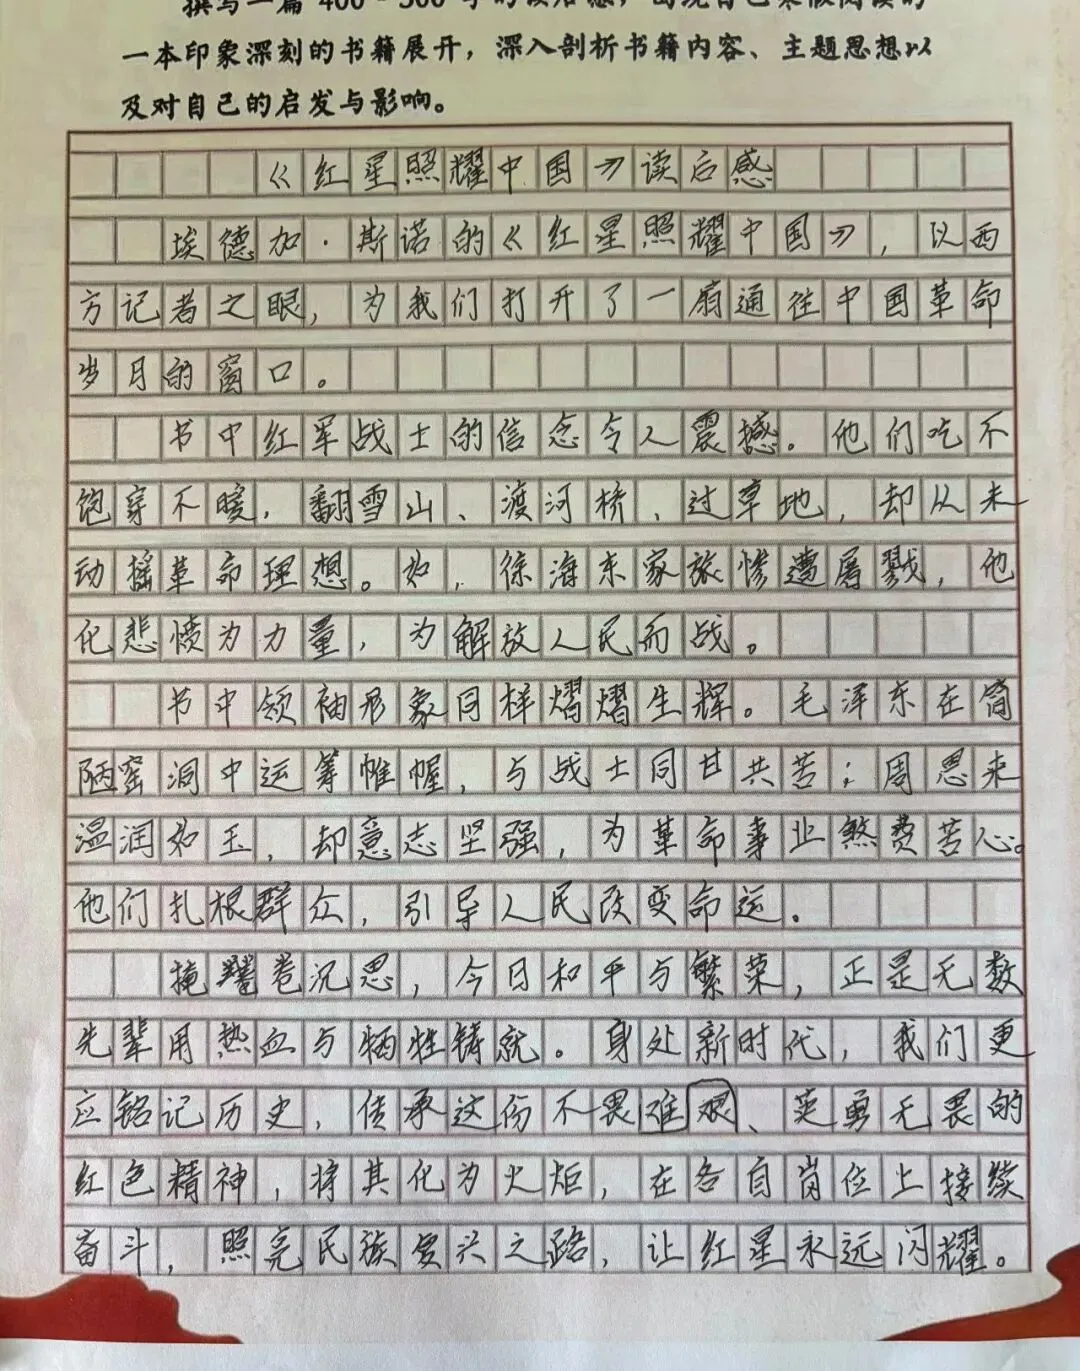 撰写一篇400-500字的读后感，
一本印象深刻的书籍展开，深入剖析书籍内容、主题思想以
及对自己的启发与影响。
《红星照耀中国》读后感
埃德加·斯诺的《红星照耀中国》，以西
方记者之眼，为我们打开了一扇通往中国革命
岁月的窗口。
书中红军战士的信念令人震撼。他们吃不
饱穿不暖，翻雪山、渡河桥、过草地，却从未
动摇革命理想。如，徐海东家族惨遭屠戮，他
化悲愤为力量，为解放人民而战。
书中领袖形象同样熠熠生辉。毛泽东在简
陋窑洞中运筹帷幄，与战士同甘共苦；周恩来
温润如玉，却意志坚强，为革命事业煞费苦心。
他们扎根群众，引导人民改变命运。
掩卷沉思，今日和平与繁荣，正是无数
先辈用热血与牺牲铸就。身处新时代，我们更
应铭记历史，传承这份不畏难艰、英勇无畏的
红色精神，将其化为火炬，在各自岗位上接续
奋斗，照亮民族复兴之路，让红星永远闪耀。